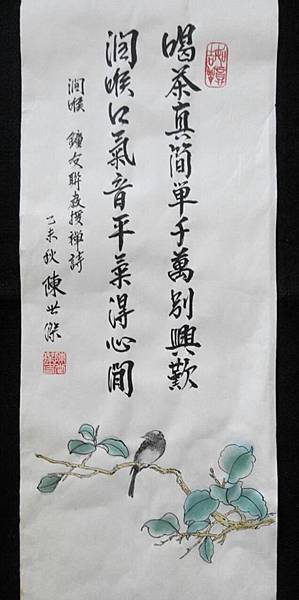 喝茶真简単千萬别興歎
润喉口氣音平氣得心閒
润喉 鐘友聯教授禅詩
乙未秋 陳世傑